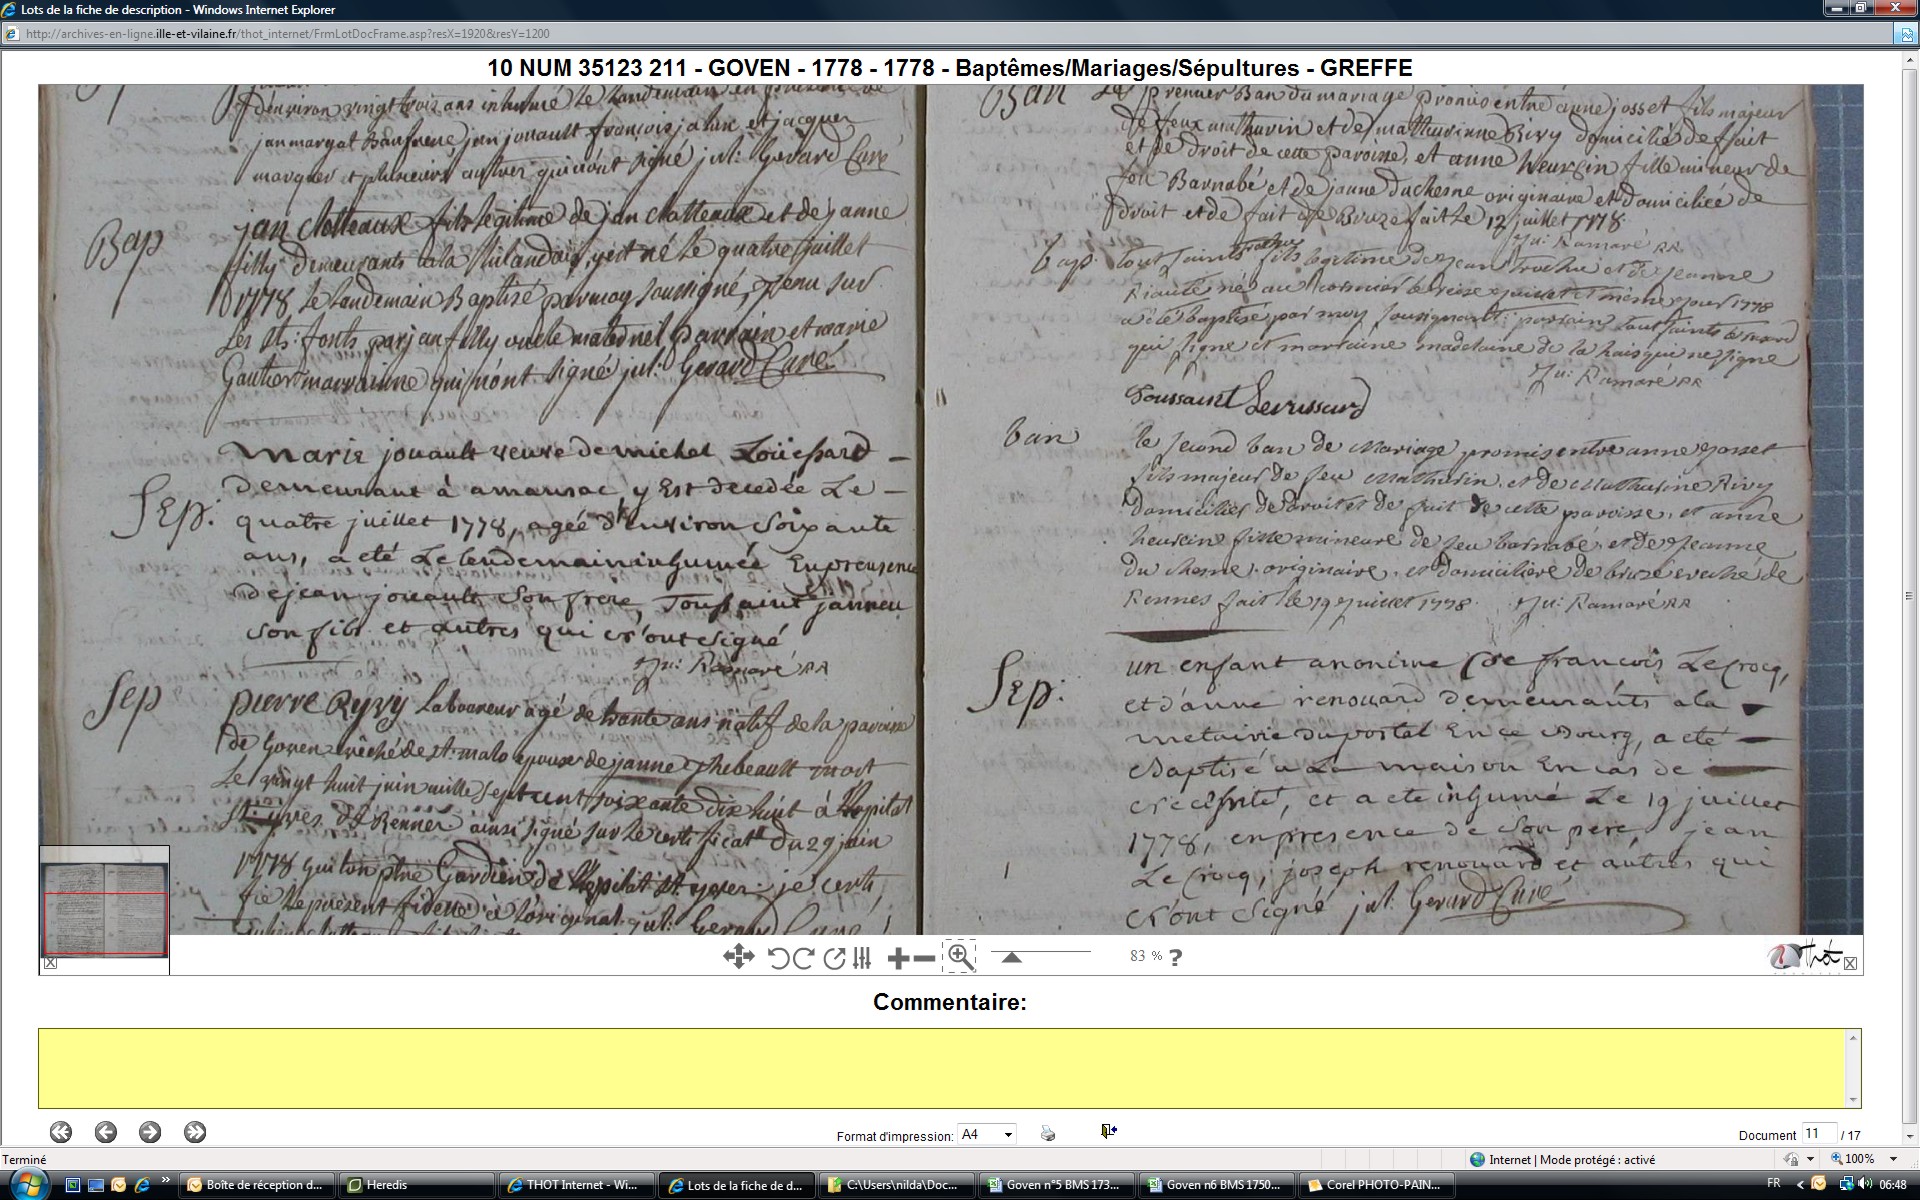 Lots de la fiche de description - Windows Internet Explorer
http://archives-en-ligne.ille-et-vilaine.fr/thot_internet/FrmLotDocFrame.asp?resX=1920&resY=1200
10 NUM 35123 211 - GOVEN - 1778 - 1778 - Baptêmes/Mariages/Sépultures - GREFFE
d'environ vingt trois ans inhumé le landemain en presence de
jan margat jan jouault françois et jacques
marquer et plusieurs autres qui n'ont signé jul: Gerard Curé
Bap
jan clotteaux fils legitime de jan clotteaux et de janne
filly demeurants à la y est né le quatre juillet
1778 le landemain Baptisé par moy soussigné, tenu sur
Les sts: fonts par jan filly oncle maternel parrain et marie
Gautier marrainne qui n'ont signé jul: Gerard Curé
Sep:
Marie jouault veuve de michel
demeurant à amansac, y Est decedée Le
quatre juillet 1778, agée d'environ soixante
ans, a eté Le lendemain inhumée En presence
de jean jouault son frere, Toussaint janneu
son fils et autres qui n'ont signé
Ju: Ramaré RR
Sep
pierre Ryvy Laboureur agé de trante ans natif de la paroisse
de Goven evêché de st: malo epoux de janne Thebeault mort
Le vingt huit juin mille sept cent soixante dix huit à l'hopital
st: yves de Rennes ainsi signé sur le certificat du 29 juin
1778 Gardien de l'hopital st. yves je certi
fie le present fidelle à l'original. jul: Gerard Curé
Ban
Le premier Ban du mariage promis entre anne josset fils majeur
de feu mathurin et de mathurinne Rivy domicilié de fait
et de droit de cette paroisse, et anne heurtin fille mineur de
feu Barnabé et de janne duchesne originaire et domiciliée de
droit et de fait de Bruze fait le 12 juillet 1778
Ju: Ramaré RR
bap:
tout saints trochu fils legitime de jean trochu et de jeanne
né au juillet et même jour 1778
a eté baptisé par moy soussignant: parrain tout saints
qui signe et marraine madelaine de la hais qui ne signe
Ju: Ramaré RR
Toussaint
ban
le second ban de Mariage promis entre anne josset
fils majeur de feu Mathurin, et de Mathurine Rivy
domiciliés de droit et de fait de cette paroisse, et anne
heurtin fille mineure de feu barnabé, et de jeanne
du chesne, originaire, et domiciliere de bruze eveché de
Rennes fait le 19 juillet 1778. Ju: Ramaré RR
Sep:
un enfant anonime de françois Le crocq,
et d'anne renouard demeurants a la
metairie du portal En ce Bourg, a eté
Baptisé a La maison En cas de
necessité, et a eté inhumé Le 19 juillet
1778, en presence de son pere, jean
Le Crocq, joseph renouard et autres qui
n'ont signé jul: Gerard Curé
83 % ?
Thot
Commentaire:
Format d'impression: A4
Document 11 / 17
Terminé
Internet | Mode protégé : activé
100%
Boîte de réception d...
Heredis
THOT Internet - Wi...
Lots de la fiche de d...
C:\Users\nilda\Doc...
Goven n°5 BMS 173...
Goven n6 BMS 1750...
Corel PHOTO-PAIN...
FR
06:48